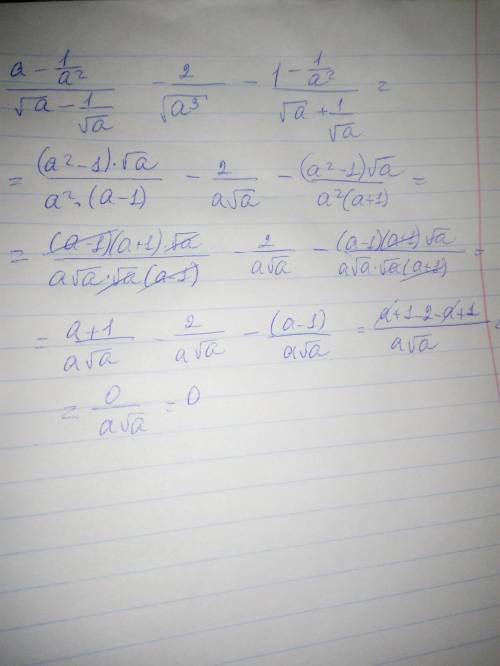 (a - 1/a²)/(√a - 1/√a) - 2/√a³ - (1 - 1/a²)/(√a + 1/√a) =
= ((a²-1)·√a)/(a²·(a-1)) - 2/(a√a) - ((a²-1)√a)/(a²(a+1)) =
= ((a-1)(a+1)·√a)/(a√a·√a(a-1)) - 2/(a√a) - ((a-1)(a+1)√a)/(a√a·√a(a+1)) =
= (a+1)/(a√a) - 2/(a√a) - (a-1)/(a√a) = (a+1-2-a+1)/(a√a) =
= 0/(a√a) = 0